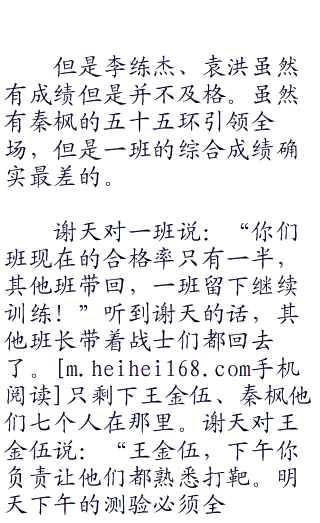 但是李练杰、袁洪虽然
有成绩但是并不及格。虽然
有秦枫的五十五环引领全
场，但是一班的综合成绩确
实最差的。
谢天对一班说：“你们
班现在的合格率只有一半，
其他班带回，一班留下继续
训练！”听到谢天的话，其
他班长带着战士们都回去
了。[m.heihei168.com手机
阅读]只剩下王金伍、秦枫他
们七个人在那里。谢天对王
金伍说：“王金伍，下午你
负责让他们都熟悉打靶。明
天下午的测验必须全